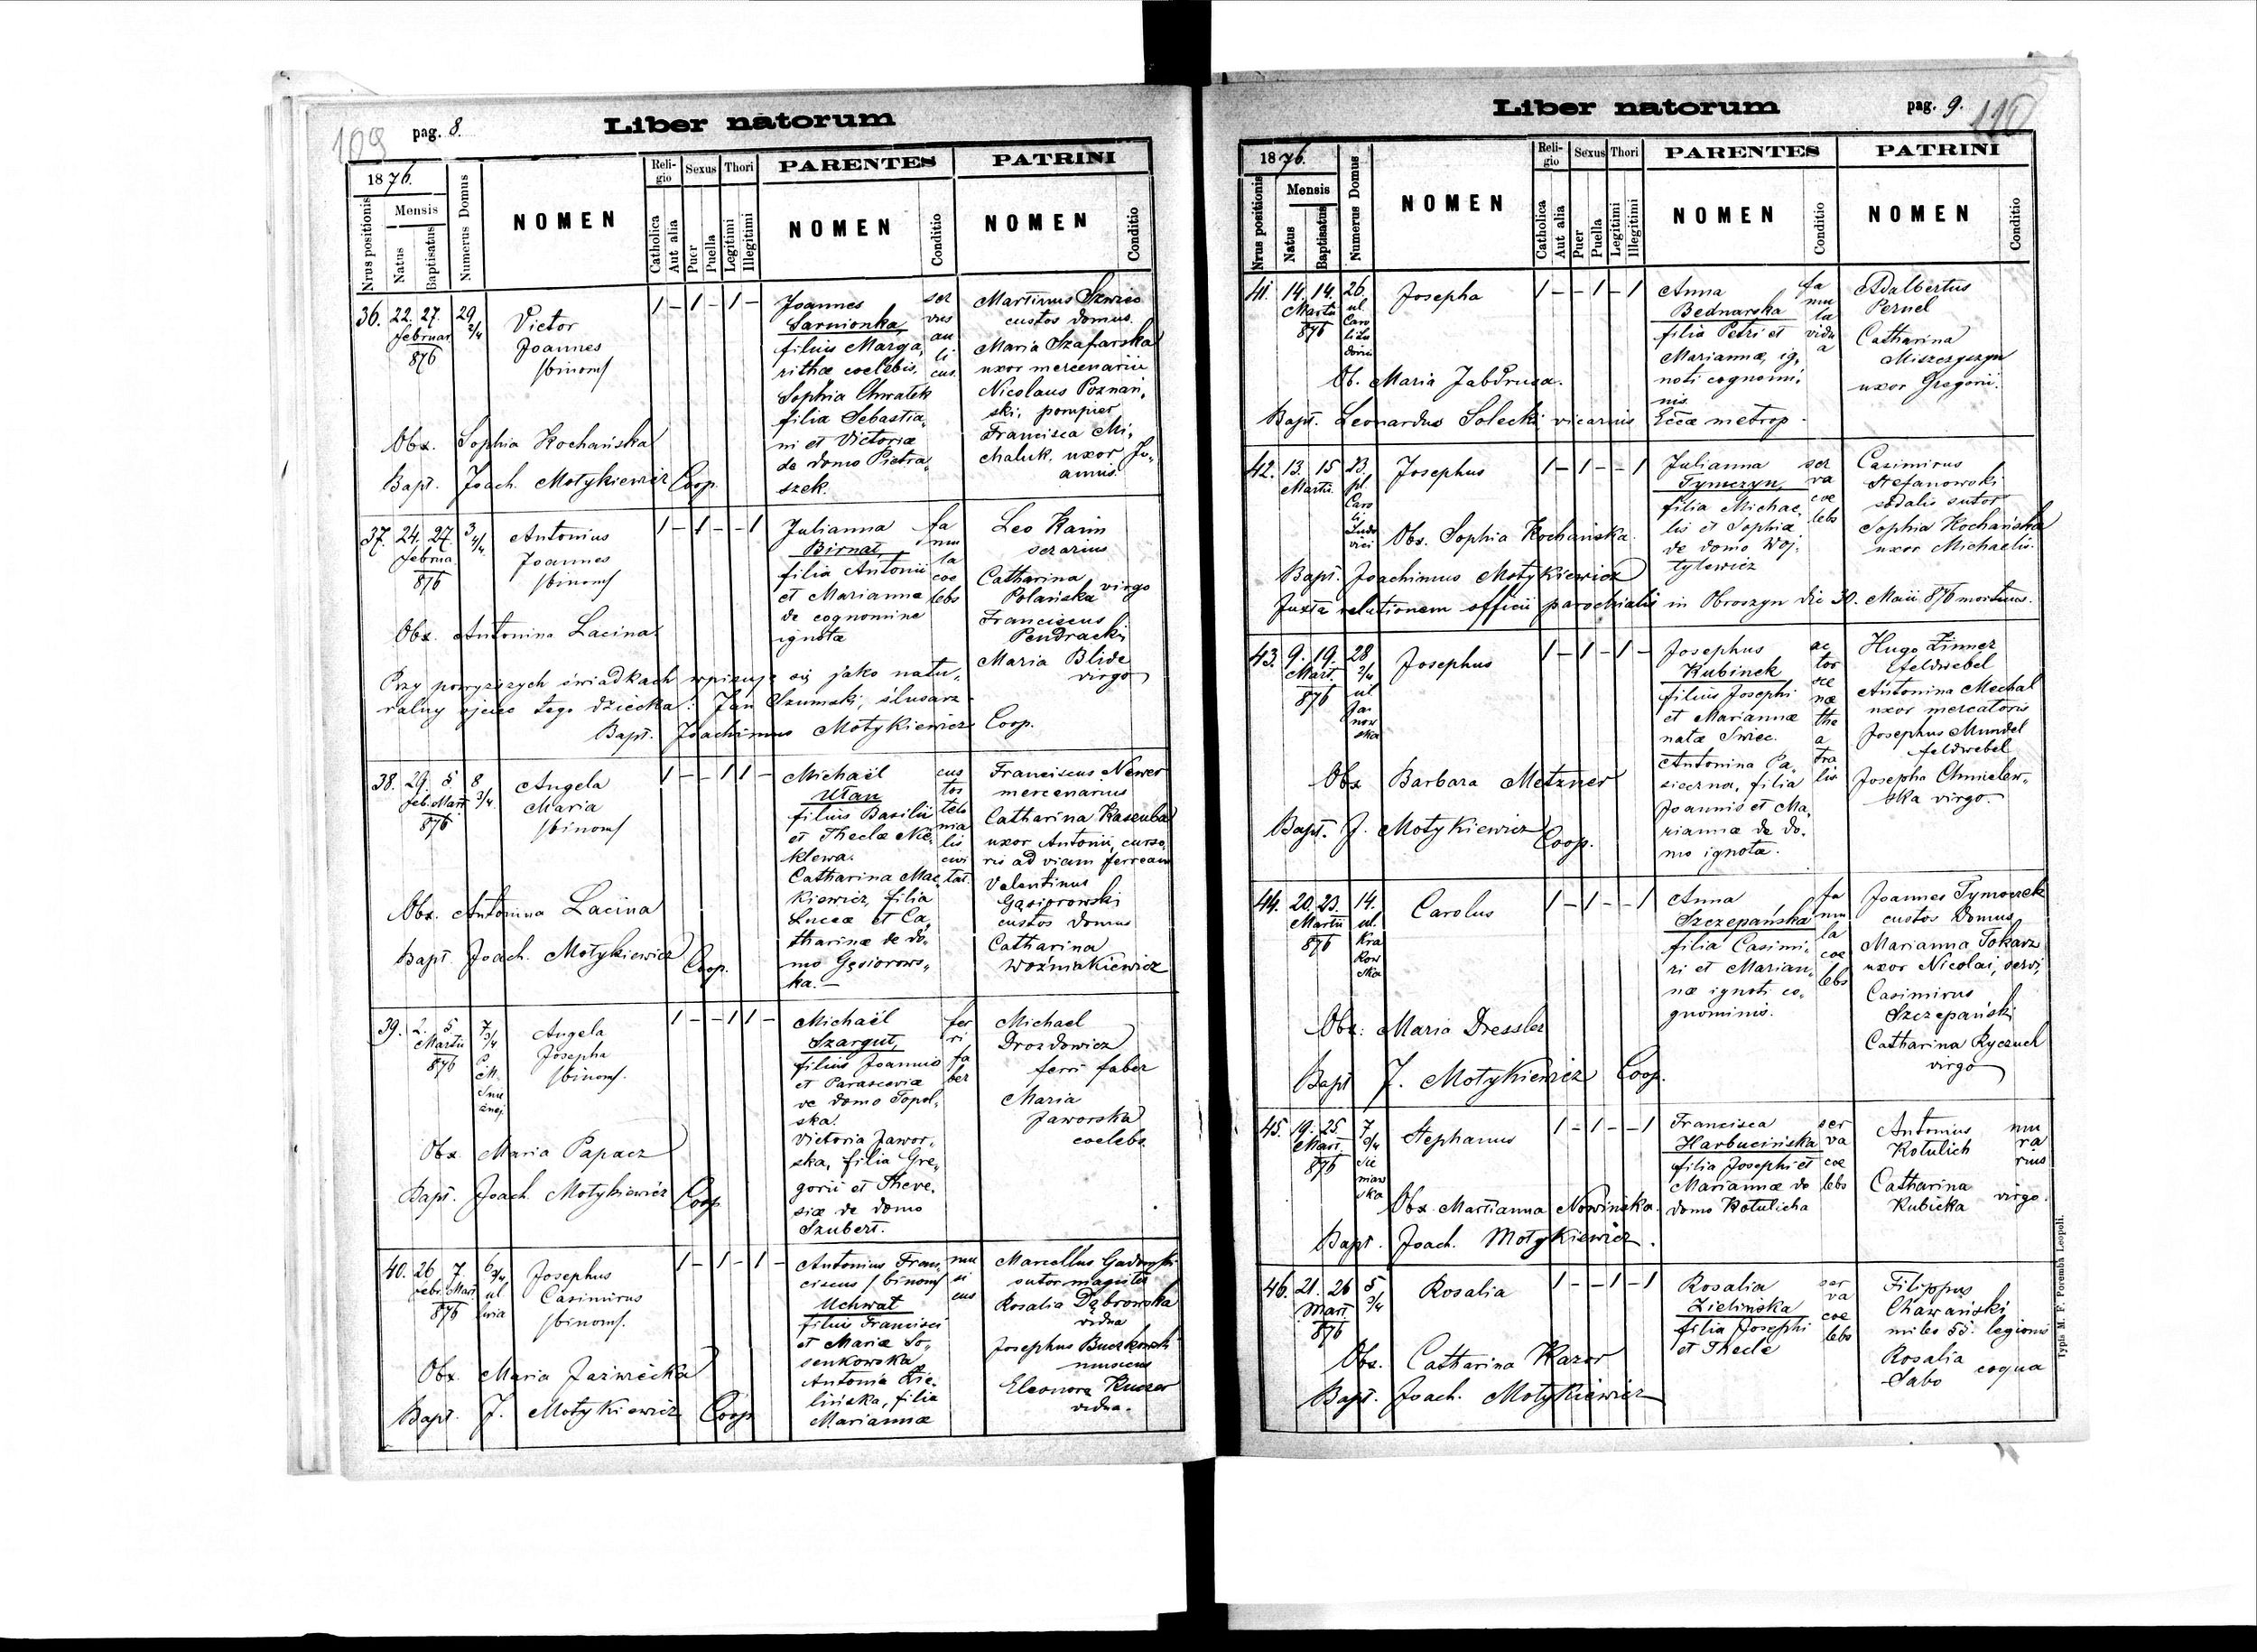 109
pag. 8.
Liber natorum
1876.
Nrus positionis
Mensis
Natus
Baptisatus
Numerus Domus
NOMEN
Reli-
gio
Catholica
Aut alia
Sexus
Puer
Puella
Thori
Legitimi
Illegitimi
PARENTES
NOMEN
Conditio
PATRINI
NOMEN
Conditio
36. 22. 27. 29 2/4
Februar
876
Victor
Joannes
/binom/
1 – 1 – 1 –
Joannes
Sarnionka,
filius Marga,
rithæ coelebis.
Sophia Chwałek
filia Sebastia,
ni et Victoriæ
de domo Pietra,
szek.
ser
vus
au
li
cus.
Martinus Szwiec
custos domus.
Maria Szafarska
uxor mercenarii
Nicolaus Poznań,
ski, pompier
Francisca Mi,
chaluk, uxor Jo,
annis.
Obx. Sophia Kochańska
Bapt. Joach. Motykiewicz Coop.
37. 24. 27. 3 4/4
Februa.
876
Antonius
Joannes
/binom/
1 – 1 – – 1
Julianna
Birnat,
filia Antonii
et Marianna
de cognomine
ignota
fa
mu
la
coe
lebs
Leo Karin
serarius
Catharina
Polańska virgo
Franciscus
Pendracki
Maria Blide
virgo
Obx. Antonina Lacina
Przy powyższych świadkach wpisuje się jako natu,
ralny ojciec tego dziecka: Jan Szumski, ślusarz
Bapt. Joachimus Motykiewicz Coop.
38. 29. 5 8 3/4
Feb. Mart
876
Angela
Maria
/binom/
1 – – 1 1 –
Michaël
Ułan
filius Basilii
et Theclæ Nie,
klewa.
Catharina Mac,
kiewicz, filia
Lucæ et Ca,
tharinæ de do,
mo Gąsiorows,
ka. –
cus
tos
telo
nia
lis
civi
tat.
Franciscus Newer
mercenarius
Catharina Kasenba
uxor Antonii, curso,
ris ad viam ferream
Valentinus
Gąsiorowski
custos domus
Catharina
Woźniakiewicz
Obx. Antonina Lacina
Bapt. Joach. Motykiewicz Coop.
39. 2. 5 7 3/4
Martii
876
Angela
Josepha
/binom/.
1 – – 1 1 –
Michaël
Szargut,
filius Joannis
et Parasceviæ
de domo Topol,
ska.
Victoria Jawor,
ska, filia Gre,
gorii et There,
siæ de domo
Szubert.
fer
ri
fa
ber
Michael
Drozdowicz
ferri faber
Maria
Jaworska
coelebs.
Obx Maria Papacz
Bapt. Joach. Motykiewicz Coop
40. 26 7 6 3/4
Febr. Mart.
876
Josephus
Casimirus
/binom/.
1 – 1 – 1 –
Antonius Fran,
ciscus /binom/
Uchwat
filius Francisci
et Mariæ So,
senkowska
Antonia Zie,
lińska, filia
Mariannæ
mu
si
cus
Marcellus
sutor magister
Rosalia Dąbrowska
vidua
Josephus
musicus
Eleonora
vidua.
Obx Maria Jaźwiecka
Bapt. J. Motykiewicz Coop
Liber natorum
pag. 9.
110
1876.
Nrus positionis
Mensis
Natus
Baptisatus
Numerus Domus
NOMEN
Reli-
gio
Catholica
Aut alia
Sexus
Puer
Puella
Thori
Legitimi
Illegitimi
PARENTES
NOMEN
Conditio
PATRINI
NOMEN
Conditio
41. 14. 14. 26.
Martii
876
ul.
Caro
li Lu
dovici
Josepha
1 – – 1 – 1
Anna
Bednarska
filia Petri et
Mariannæ, ig,
noti cognomi,
nis
fa
mu
la
vidu
a
Adalbertus
Pernel
Catharina
Miszczyszyn
uxor Gregorii.
Ob. Maria Jabdrusa.
Bapt. Leonardus Solecki vicarius Eccæ metrop.
42. 13. 15 23.
Martii.
pl.
Caro
li
Ludo
vici
Josephus
1 – 1 – – 1
Julianna
Tymczyn,
filia Michae,
lis et Sophia
de domo Woj,
tylewicz
ser
va
coe
lebs
Casimirus
Stefanowski
sodalis sutor
Sophia Kochańska
uxor Michaelis.
Obx. Sophia Kochańska.
Bapt. Joachimus Motykiewicz
Juxta relationem officii parochialis in Obroszyn die 30. Maii 876 mortuus.
43. 9. 19. 28 2/4
Mart.
876
ul
Ja
now
ska
Josephus
1 – 1 – 1 –
Josephus
Kubinek
filius Josephi
et Mariannæ
natæ Swiec.
Antonina Pa,
sierna, filia
Joannis et Ma,
riannæ de do,
mo ignota.
ac
tor
sce
næ
the
a
tra
lis
Hugo Zinner
feldwebel
Antonina Mechal
uxor mercatoris
Josephus Mundel
feldwebel
Josepha Chmielew,
ska virgo.
Obx Barbara Metzner
Bapt. J. Motykiewicz Coop.
44. 20. 23. 14.
Martii
876
ul.
Kra
kow
ska
Carolus
1 – 1 – – 1
Anna
Szczepańska
filia Casimi,
ri et Marian,
næ ignoti co,
gnominis.
fa
mu
la
coe
lebs
Joannes Tymoczek
custos domus
Marianna Tokarz
uxor Nicolai, servi,
Casimirus
Szczepański
Catharina Ryczuch
virgo
Obx: Maria Dressler
Bapt J. Motykiewicz Coop.
45. 19. 25. 7 3/4
Mart.
876
Sie
niaw
ska
Stephanus
1 – 1 – – 1
Francisca
Harbucińska
filia Josephi et
Mariannæ de
domo Kotulicha
ser
va
coe
lebs
Antonius
Kotulich
mu
ra
rius
Catharina
Kubicka virgo.
Obx. Martianna Nowińska.
Bapt. Joach. Motykiewicz.
46. 21. 26 5 3/4
Mart.
876
Rosalia
1 – – 1 – 1
Rosalia
Zielińska
filia Josephi
et Theclæ
ser
va
coe
lebs
Filippus
Chawański
miles 55. legionis
Rosalia
Sabo coqua
Obx. Catharina Kazor
Bapt. Joach. Motykiewicz
Typis M. F. Poremba Leopoli.